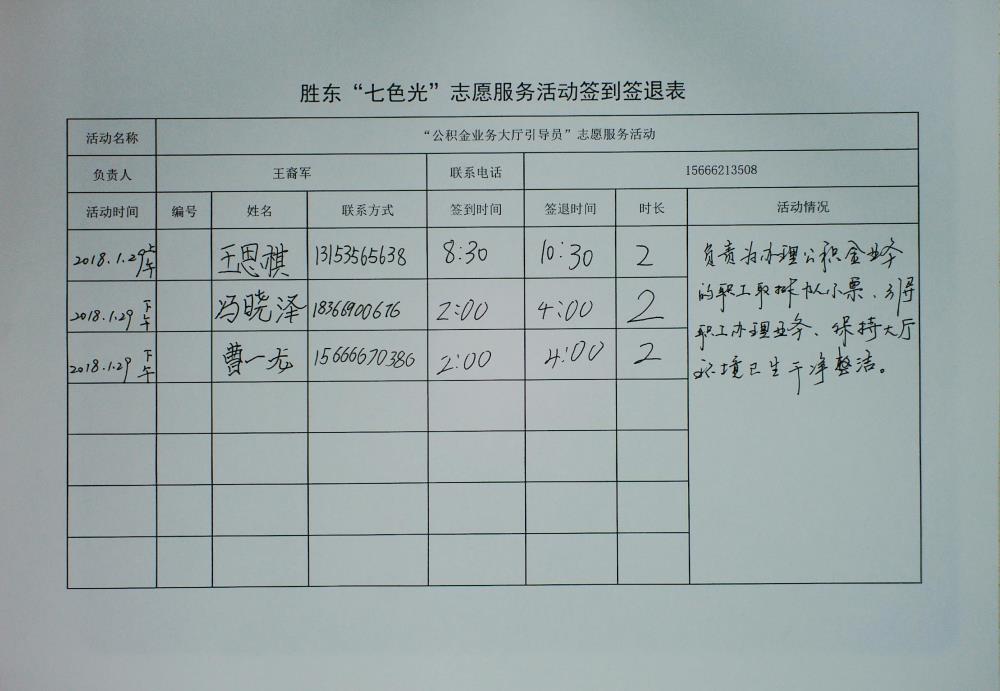 胜东“七色光”志愿服务活动签到签退表
活动名称 “公积金业务大厅引导员”志愿服务活动
负责人 王裔军 联系电话 15666213508
活动时间 编号 姓名 联系方式 签到时间 签退时间 时长 活动情况
2018.1.29上午 王思祺 13153565638 8:30 10:30 2
2018.1.29下午 冯晓泽 18366900676 2:00 4:00 2
2018.1.29下午 曹一尤 15666670380 2:00 4:00 2
负责为办理公积金业务
的职工取排队小票、引导
职工办理业务、保持大厅
环境卫生干净整洁。